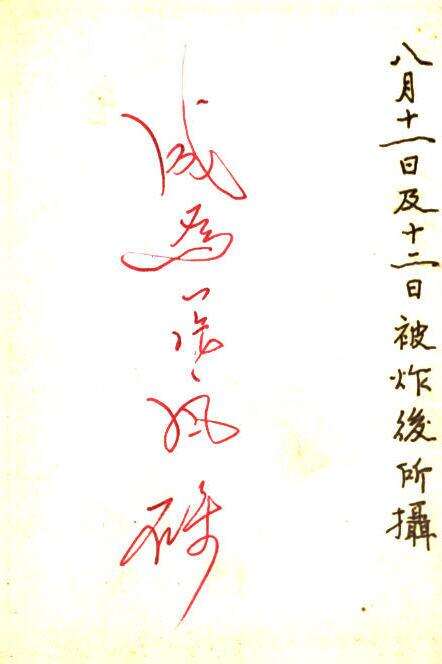 八月十一日及十二日被炸後所攝
成為一堆瓦砾